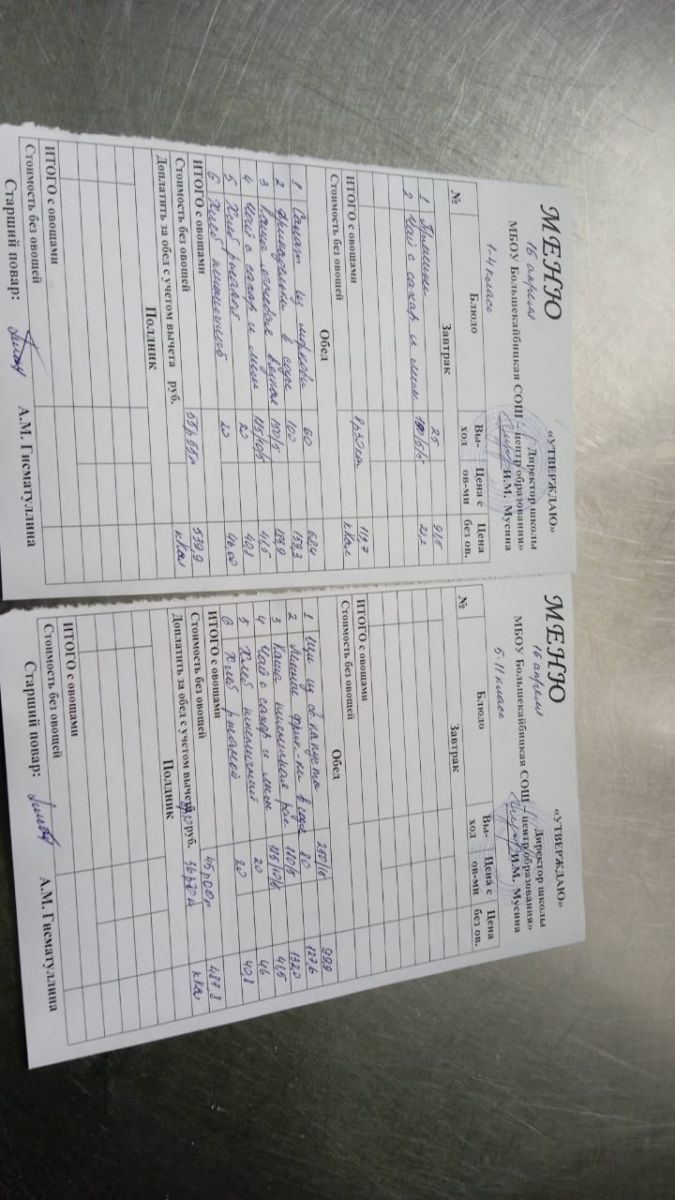 МЕНЮ
«УТВЕРЖДАЮ»
16 апреля
Директор школы
МБОУ Большекайбицкая СОШ – центр образования»
И.М. Мусина
1-4 класс
№ Блюдо Вы-ход Цена с ов-ми Цена без ов.
Завтрак
1 25 91,5
2 Чай с сахар и лим 21,2
ИТОГО с овощами 8р30коп 113,7
Стоимость без овощей ккал
Обед
1 Салат из моркови 60 62,4
2 Фрикадельки в соусе 100 159,3
3 Каша вязкая 150/5
4 Чай с сахар и лимон 41,5
5 Хлеб ржаной 20 40,1
6 Хлеб пшеничный 20
ИТОГО с овощами 539,9
Стоимость без овощей ккал
Доплатить за обед с учетом вычета руб.
Полдник
ИТОГО с овощами
Стоимость без овощей
Старший повар: А.М. Гисматуллина
МЕНЮ
«УТВЕРЖДАЮ»
16 апреля
Директор школы
МБОУ Большекайбицкая СОШ – центр образования»
И.М. Мусина
5-11 класс
№ Блюдо Вы-ход Цена с ов-ми Цена без ов.
Завтрак
ИТОГО с овощами
Стоимость без овощей
Обед
1 Щи из св капусты 250/10 99,9
2 в соусе 80 127,6
3 Каша 150/5 132,0
4 Чай с сахар и лимон 41,5
5 Хлеб пшеничный 20 46
6 Хлеб ржаной 20 40,8
ИТОГО с овощами 45р00к 487,8
Стоимость без овощей ккал
Доплатить за обед с учетом вычета руб.
Полдник
ИТОГО с овощами
Стоимость без овощей
Старший повар: А.М. Гисматуллина